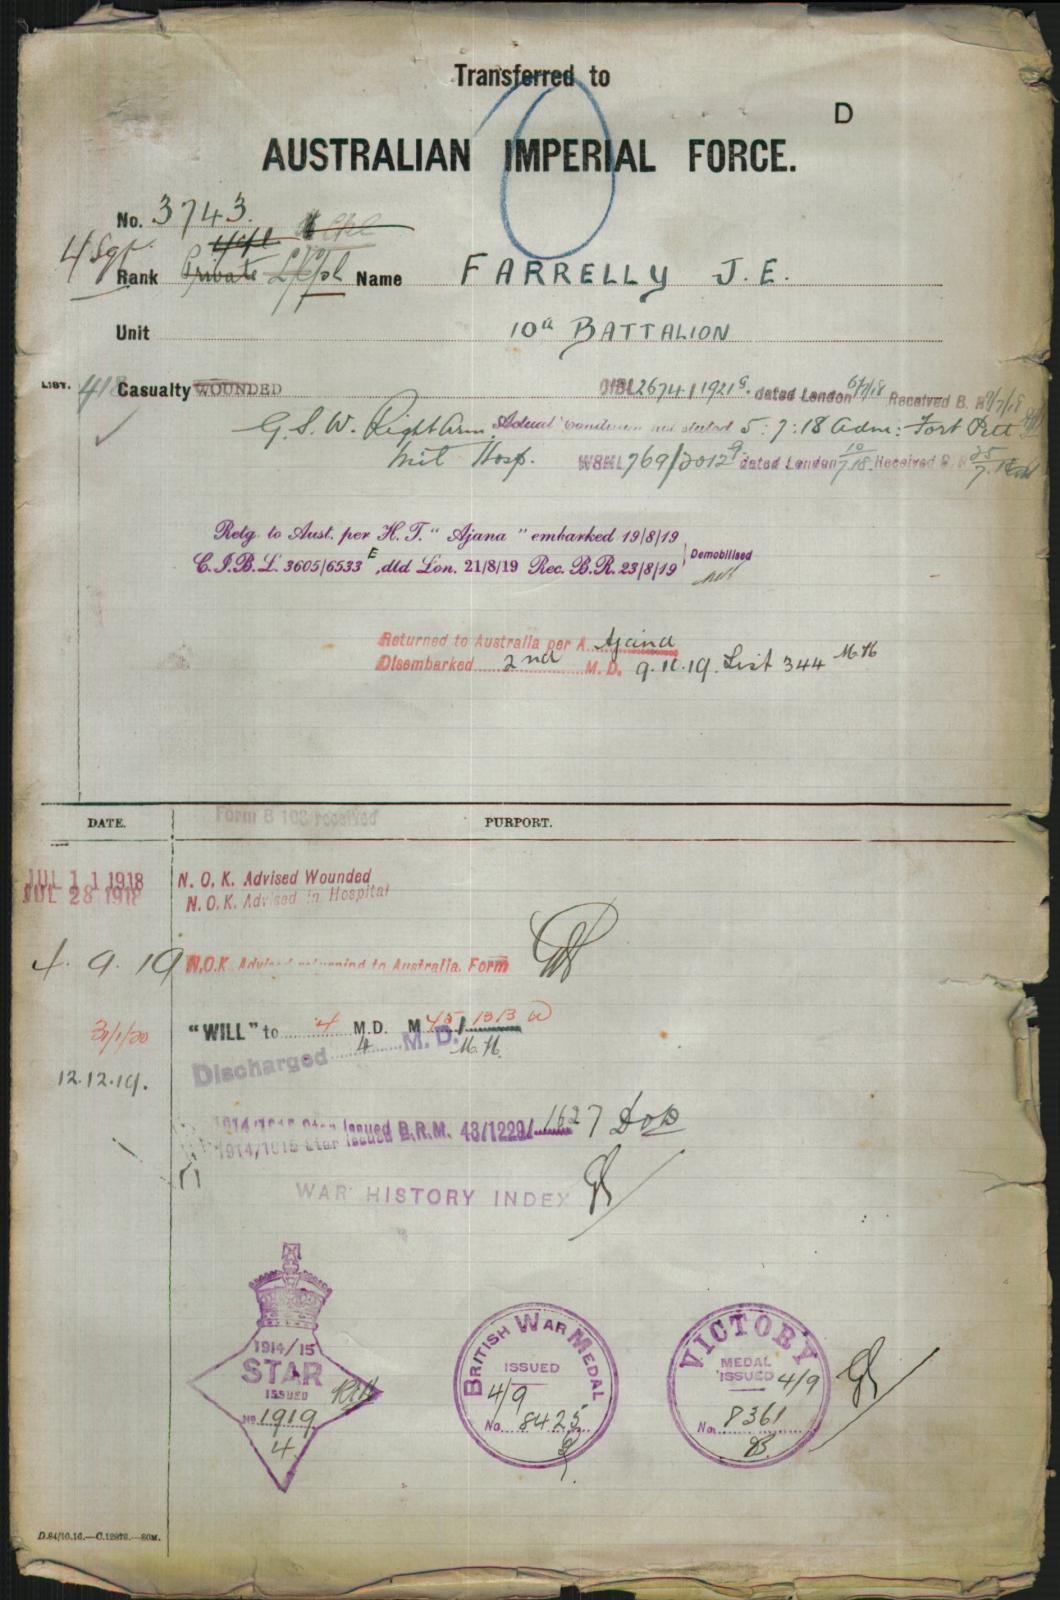 Transferred to
D
AUSTRALIAN IMPERIAL FORCE.
No. 3743.
4/Cpl
4 Sgt. Rank Private L/Cpl Name FARRELLY J.E.
Unit 10th BATTALION
LIST. 418 Casualty WOUNDED CIBL 2674/1921 G. dated London 6/7/18 Received B. R. 9/7/18
G.S.W. Right Arm. Actual condition not stated 5:7:18 Adm: Fort Pitt
Mil Hosp. W&HL 769/2012 G dated London 10/7/18 Received B. R. 25/7/18
Retg. to Aust. per H. T. "Ajana" embarked 19/8/19
C.I.B.L. 3605/6533 E, dtd Lon. 21/8/19 Rec. B.R. 23/8/19 Demobilised
Returned to Australia per A. Ajana
Disembarked 2nd M. D. 9.10.19. List 344 M.H
Form B 103 received
DATE. PURPORT.
JUL 11 1918 N. O. K. Advised Wounded
JUL 28 1918 N. O. K. Advised in Hospital
4. 9. 19 N.O.K. Advised returning to Australia. Form
31/1/20 "WILL" to 4 M.D. M 45/1313 W
12.12.19. Discharged 4 M. D. M.H.
1914/1915 Star Issued B.R.M. 43/1229/1627
1914/1915 Star Issued
WAR HISTORY INDEX
1914/15
STAR
ISSUED
No 1919
4.
BRITISH WAR MEDAL
ISSUED
4/9
No. 8425
VICTORY
MEDAL
ISSUED 4/9
No. 8361
D.84/10.16.—C.12876.—50M.